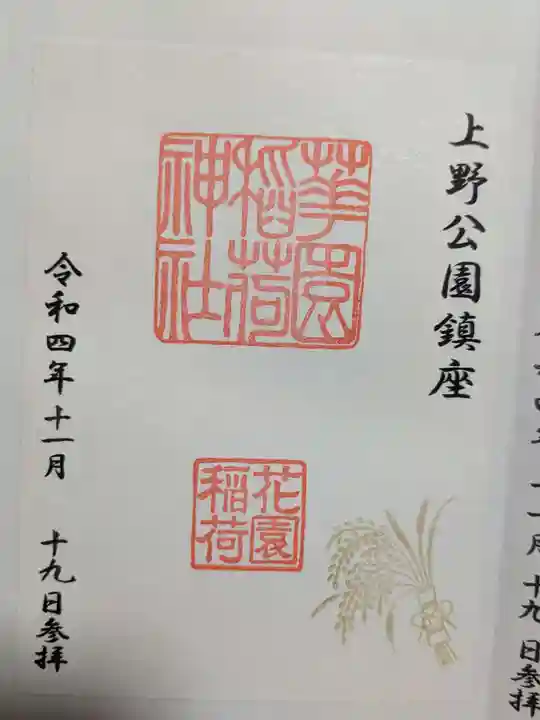 上野公園鎮座
華園
稲荷
神社
花園
稲荷
令和四年十一月 十九日参拝
十九日参拝